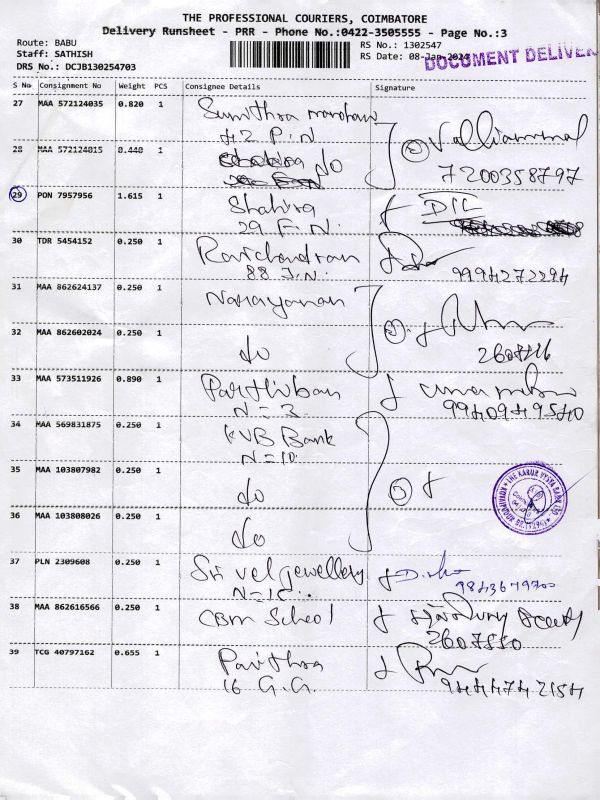 THE PROFESSIONAL COURIERS, COIMBATORE
Delivery Runsheet - PRR - Phone No.:0422-3505555 - Page No.:3
Route: BABU
Staff: SATHISH
DRS No.: DCJB130254703
RS No.: 1302547
RS Date: 08-Jan-2024
DOCUMENT DELIVER
S No Consignment No Weight PCS Consignee Details Signature
27 MAA 572124035 0.820 1 Sumithra
42 P.N
Valliammal
7200358797
28 MAA 572124015 0.440 1 do
29 PON 7957956 1.615 1 Shahira
29 F.N.
30 TDR 5454152 0.250 1 Ravichandran
88 J.N.
9994272294
31 MAA 862624137 0.250 1 Narayanan
32 MAA 862602024 0.250 1 do
33 MAA 573511926 0.890 1 Parthiban
N = 3
9940949540
34 MAA 569831875 0.250 1 KVB Bank
N = 10
35 MAA 103807982 0.250 1 do
36 MAA 103808026 0.250 1 do
THE KARUR VYSYA BANK LTD
37 PLN 2309608 0.250 1 Sri vel jewellery
9843649700
38 MAA 862616566 0.250 1 CBM School
2607550
39 TCG 40797162 0.655 1 Pavithra
16 G.G.